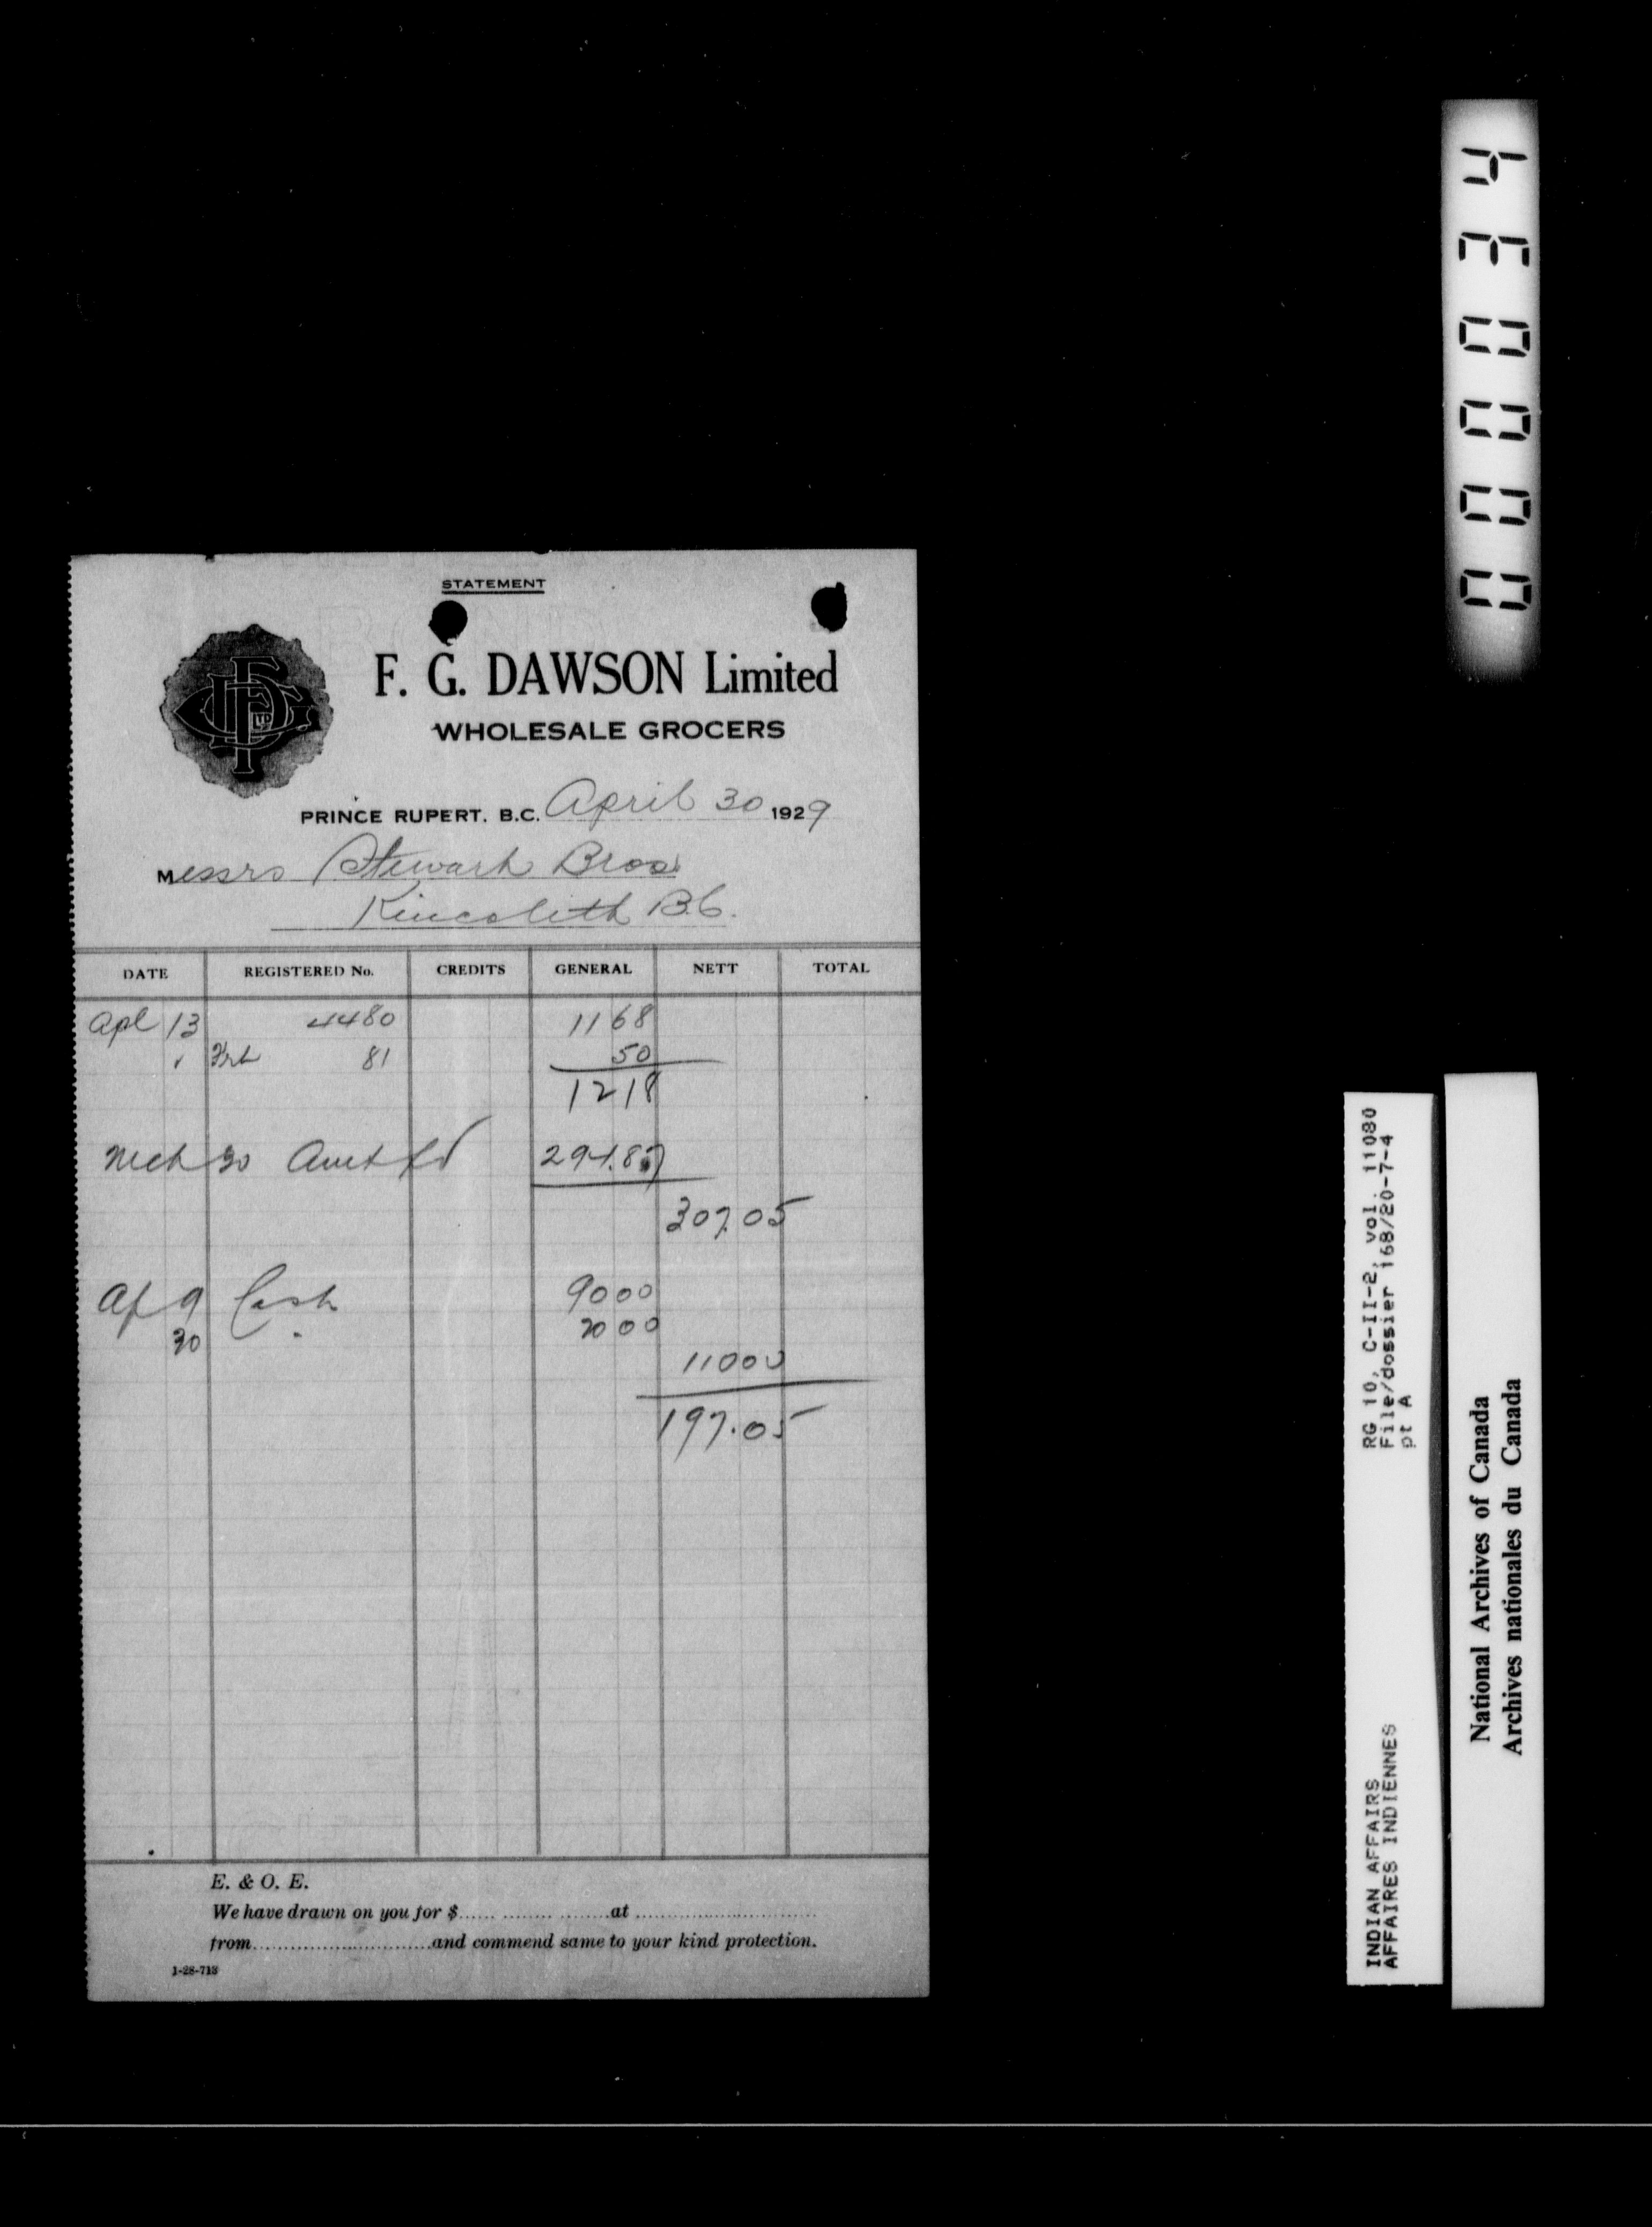 STATEMENT
F. G. DAWSON Limited
WHOLESALE GROCERS
LTD
PRINCE RUPERT. B.C. April 30 1929
Messrs Stewart Bros
Kincolith B.C.
DATE REGISTERED No. CREDITS GENERAL NETT TOTAL
Apl 13 4480 11 68
" Frt 81 50
12 18
Mch 30 Amt fd 294.87
307.05
Ap 9 Cash 90 00
30 " 20 00
110 00
197.05
E. & O. E.
We have drawn on you for $ at
from and commend same to your kind protection.
1-28-713
000034
RG 10, C-II-2, vol. 11080
File/dossier 168/20-7-4
pt A
INDIAN AFFAIRS
AFFAIRES INDIENNES
National Archives of Canada
Archives nationales du Canada